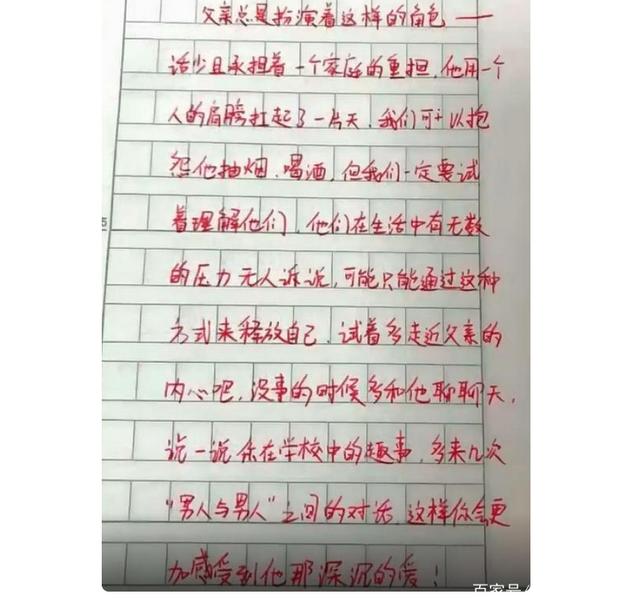 父亲总是扮演着这样的角色——
话少且承担着一个家庭的重担，他用一个
人的肩膀扛起了一片天，我们可以抱
怨他抽烟、喝酒，但我们一定要试
着理解他们，他们在生活中有无数
的压力无人诉说，可能只能通过这种
方式来释放自己，试着多走近父亲的
内心吧，没事的时候多和他聊聊天，
说一说你在学校中的趣事，多来几次
“男人与男人”之间的对话，这样你会更
加感受到他那深沉的爱！
百家号/